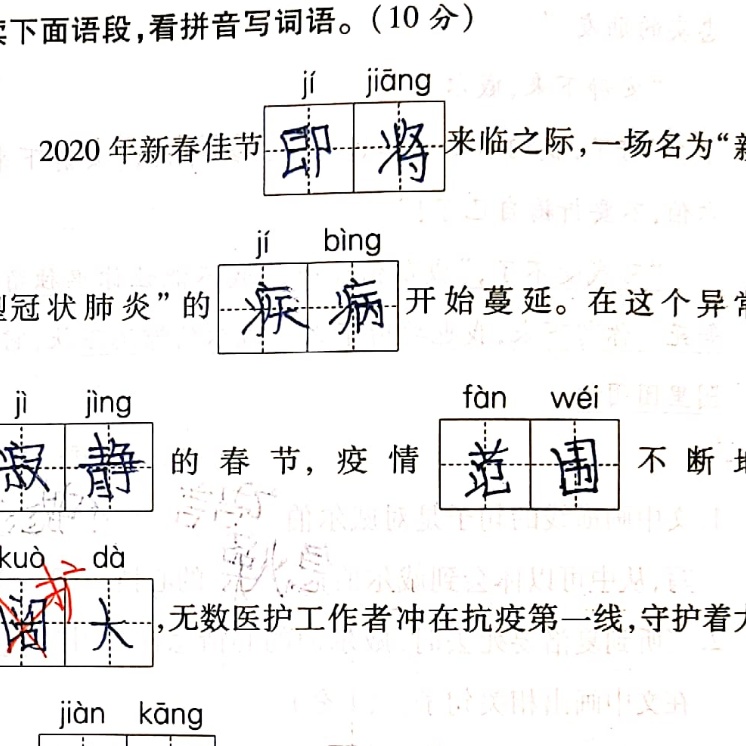 下面语段,看拼音写词语。(10分)
jí jiāng
2020年新春佳节即将来临之际,一场名为“新
jí bìng
型冠状肺炎”的疾病开始蔓延。在这个异常
jì jìng fàn wéi
寂静的春节,疫情范围不断地
kuò dà
扩大,无数医护工作者冲在抗疫第一线,守护着大
jiàn kāng